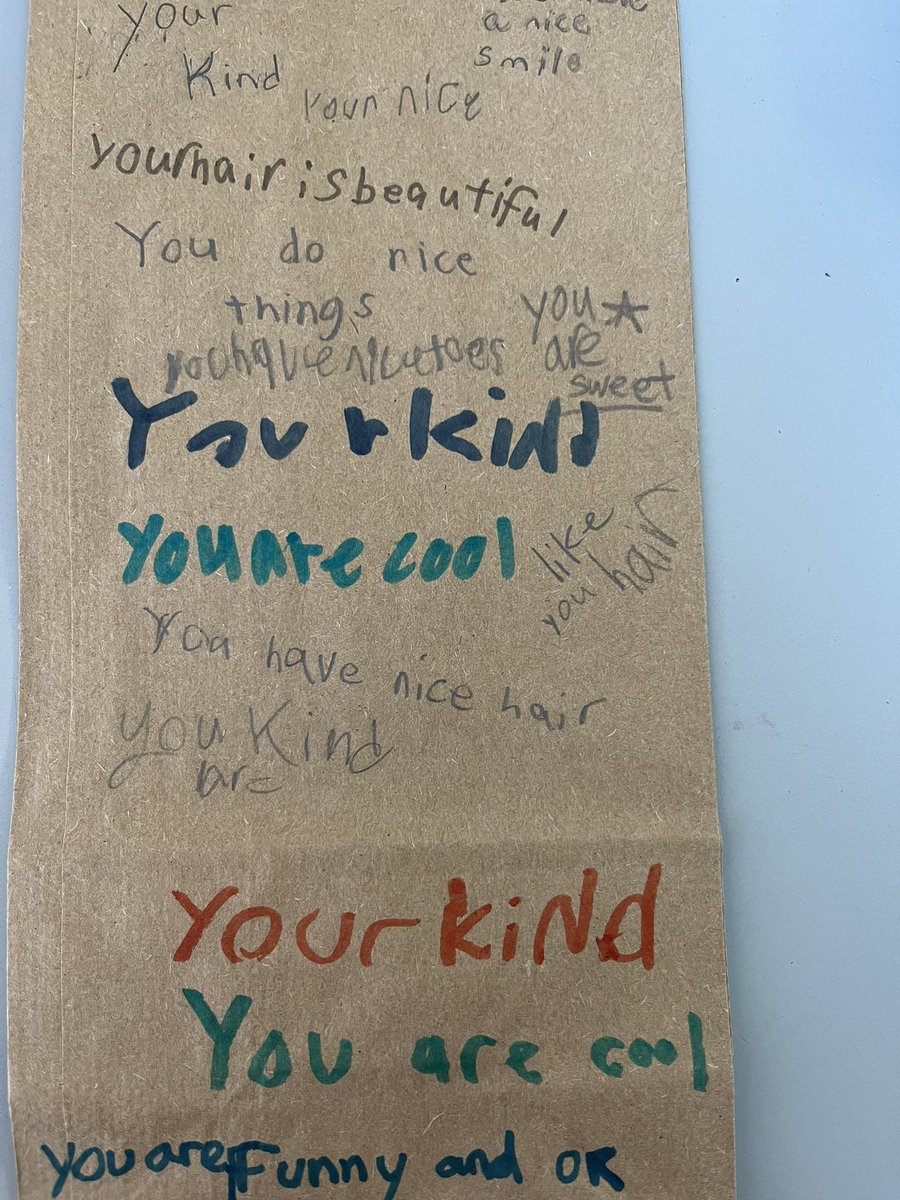 your
Kind
a nice
smile
Your nice
yourhairisbeautiful
You do nice
things
you
are
sweet
youhavenicetoes
Your kind
you are cool
like
you hair
You have nice hair
you Kind
are
Your kiNd
You are cool
you are Funny and OK